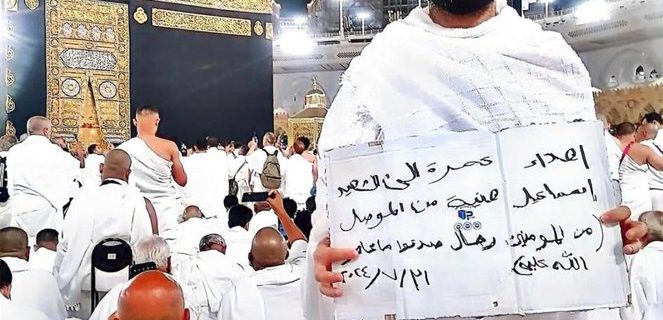 اهداء عمرة الى الشهيد
اسماعيل هنية من الموصل
(من المؤمنين رجال صدقوا ما
الله عليه) ٢٠٢٤/٧/٣١